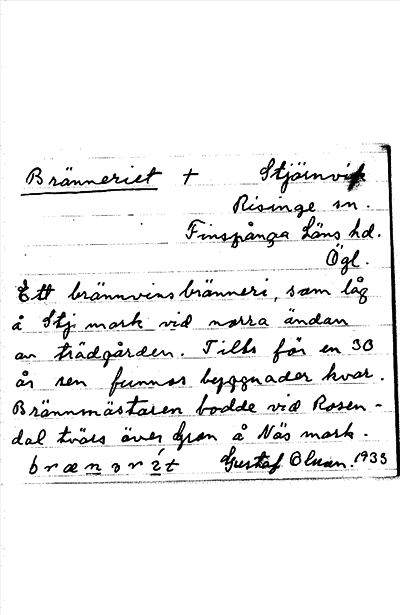 Bränneriet + Stjärnvik
Risinge sn.
Finspånga Läns hd.
Ögl.
Ett brännvinsbränneri, som låg
å Stj. mark vid norra ändan
av trädgården. Tills för en 30
år sen funnos byggnader kvar.
Brännmästaren bodde vid Rosen-
dal tvärs över sjön å Näs mark.
Gustaf Olson. 1933